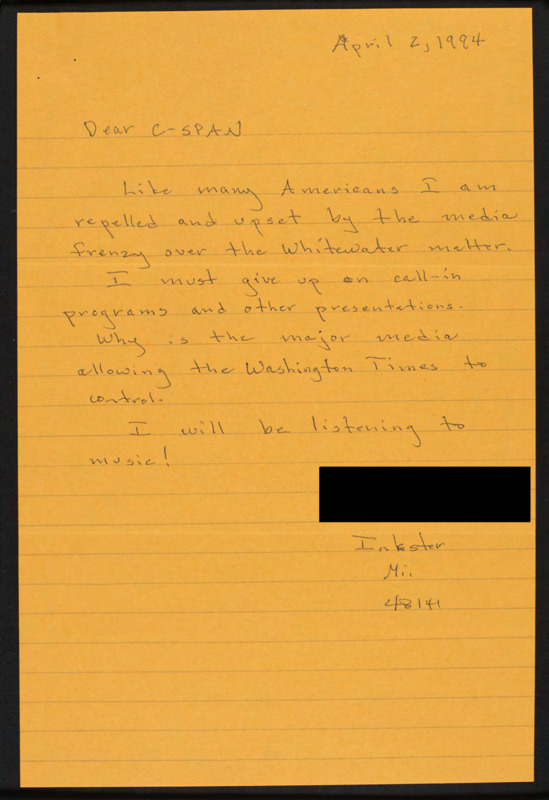 April 2, 1994
Dear C-SPAN
Like many Americans I am
repelled and upset by the media
frenzy over the Whitewater matter.
I must give up on call-in
programs and other presentations.
Why is the major media
allowing the Washington Times to
control.
I will be listening to
music!
Inkster
Mi.
48141